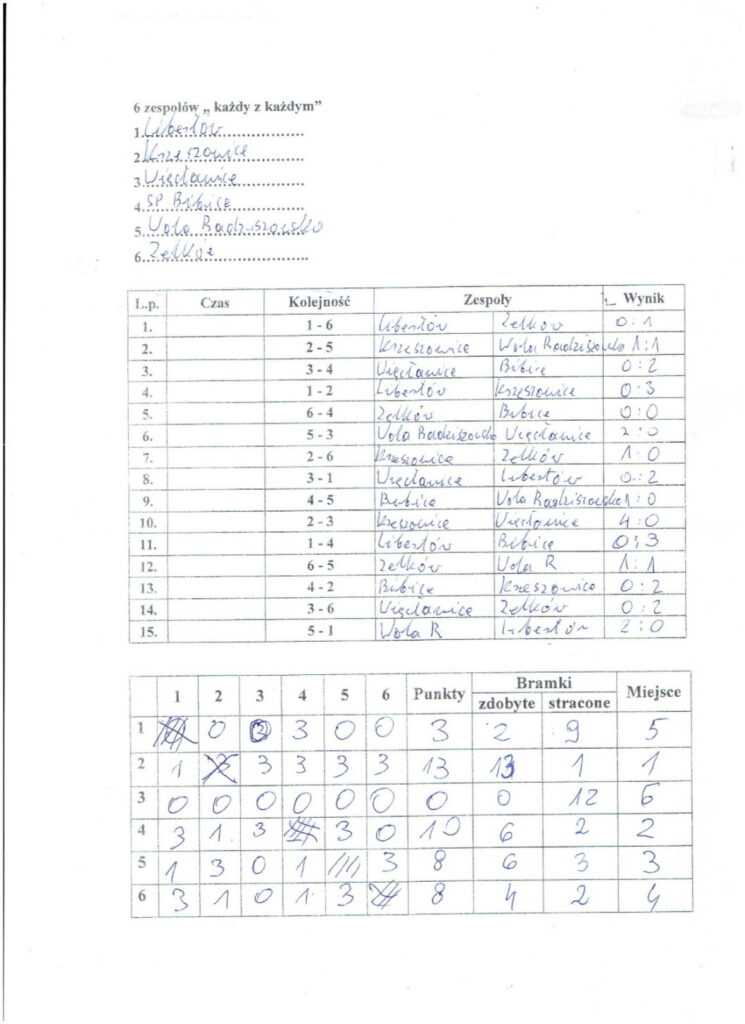 6 zespołów „ każdy z każdym”
1. Libertów
2. Krzeszowice
3. Więcławice
4. SP Bibice
5. Wola Radziszowska
6. Zelków
L.p. Czas Kolejność Zespoły Wynik
1. 1 - 6 Libertów Zelków 0:1
2. 2 - 5 Krzeszowice Wola Radziszowska 1:1
3. 3 - 4 Więcławice Bibice 0:2
4. 1 - 2 Libertów Krzeszowice 0:3
5. 6 - 4 Zelków Bibice 0:0
6. 5 - 3 Wola Radziszowska Więcławice 2:0
7. 2 - 6 Krzeszowice Zelków 1:0
8. 3 - 1 Więcławice Libertów 0:2
9. 4 - 5 Bibice Wola Radziszowska 1:0
10. 2 - 3 Krzeszowice Więcławice 4:0
11. 1 - 4 Libertów Bibice 0:3
12. 6 - 5 Zelków Wola R 1:1
13. 4 - 2 Bibice Krzeszowice 0:2
14. 3 - 6 Więcławice Zelków 0:2
15. 5 - 1 Wola R Libertów 2:0
Bramki
1 2 3 4 5 6 Punkty zdobyte stracone Miejsce
1 0 3 3 0 0 3 2 9 5
2 1 3 3 3 3 13 13 1 1
3 0 0 0 0 0 0 0 0 12 6
4 3 1. 3 3 0 10 6 2 2
5 1 3 0 1 3 8 6 3 3
6 3 1 0 1. 3 8 4 2 4